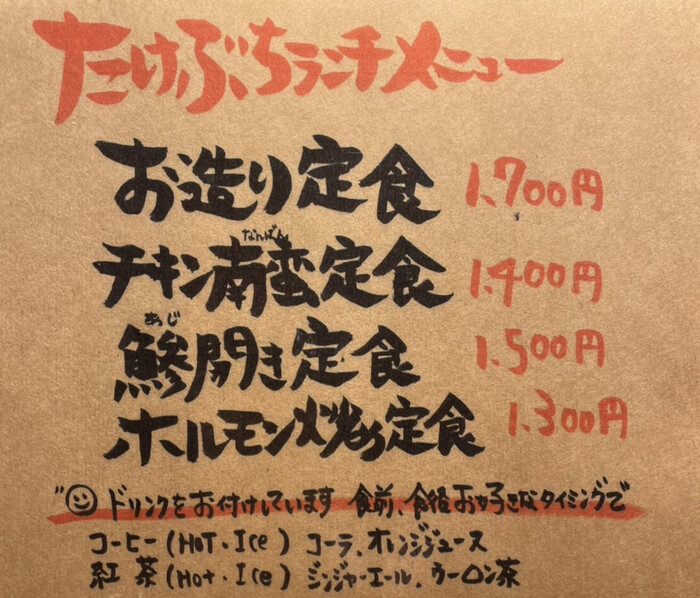 たけぶちランチメニュー
お造り定食 1,700円
なんばん
チキン南蛮定食 1,400円
あじ
鯵開き定食 1,500円
ホルモン炒め定食 1,300円
"☺ドリンクをお付けしています 食前、食後お好きなタイミングで
コーヒー(HOT・Ice) コーラ、オレンジジュース
紅茶(Hot・Ice) ジンジャーエール、ウーロン茶